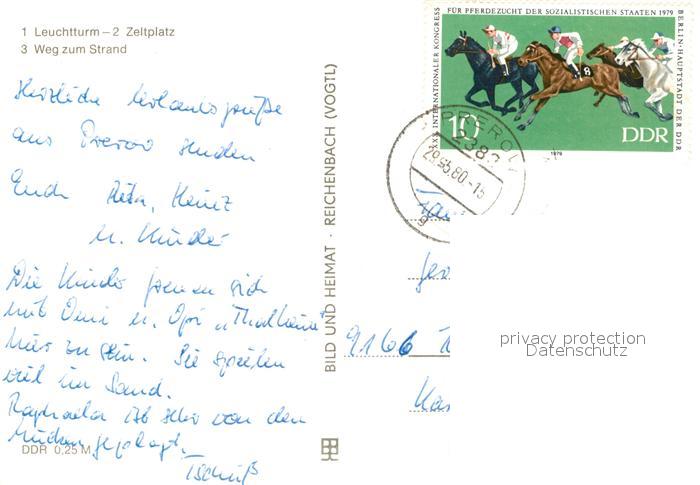 1 Leuchtturm – 2 Zeltplatz
3 Weg zum Strand
Herzliche Urlaubsgrüße
aus Prerow senden
Euch Rita, Heinz
u. Kinder
Die Kinder freuen sich
mit Omi u. Opi „Thalheim“
hier zu sein. Sie spielen
viel im Sand.
Raphaela ist sehr von den
Mücken geplagt.
Tschüß
DDR 0,25 M
BILD UND HEIMAT · REICHENBACH (VOGTL)
XXX. INTERNATIONALER KONGRESS
FÜR PFERDEZUCHT DER SOZIALISTISCHEN STAATEN 1979
BERLIN · HAUPTSTADT DER DDR
8
10
DDR
1979
PREROW
2383
80.-15
g
9166
privacy protection
Datenschutz